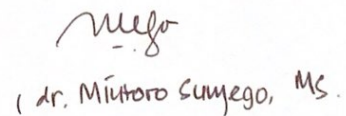 ( dr. Mintoro Sumego, MS.